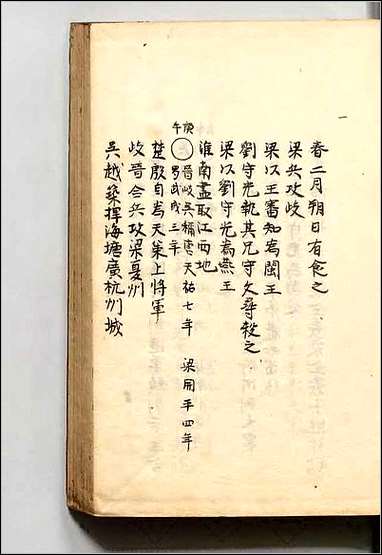 春二月朔日有食之
梁兵攻岐
梁以王審知為閩王
劉守光執其兄守文尋殺之
梁以劉守光為燕王
淮南盡取江西地
庚午
晉岐吳稱唐天祐七年 梁開平四年
蜀武成三年
楚殷自為天策上將軍
岐晉合兵攻梁夏州
吳越築捍海塘廣杭州城